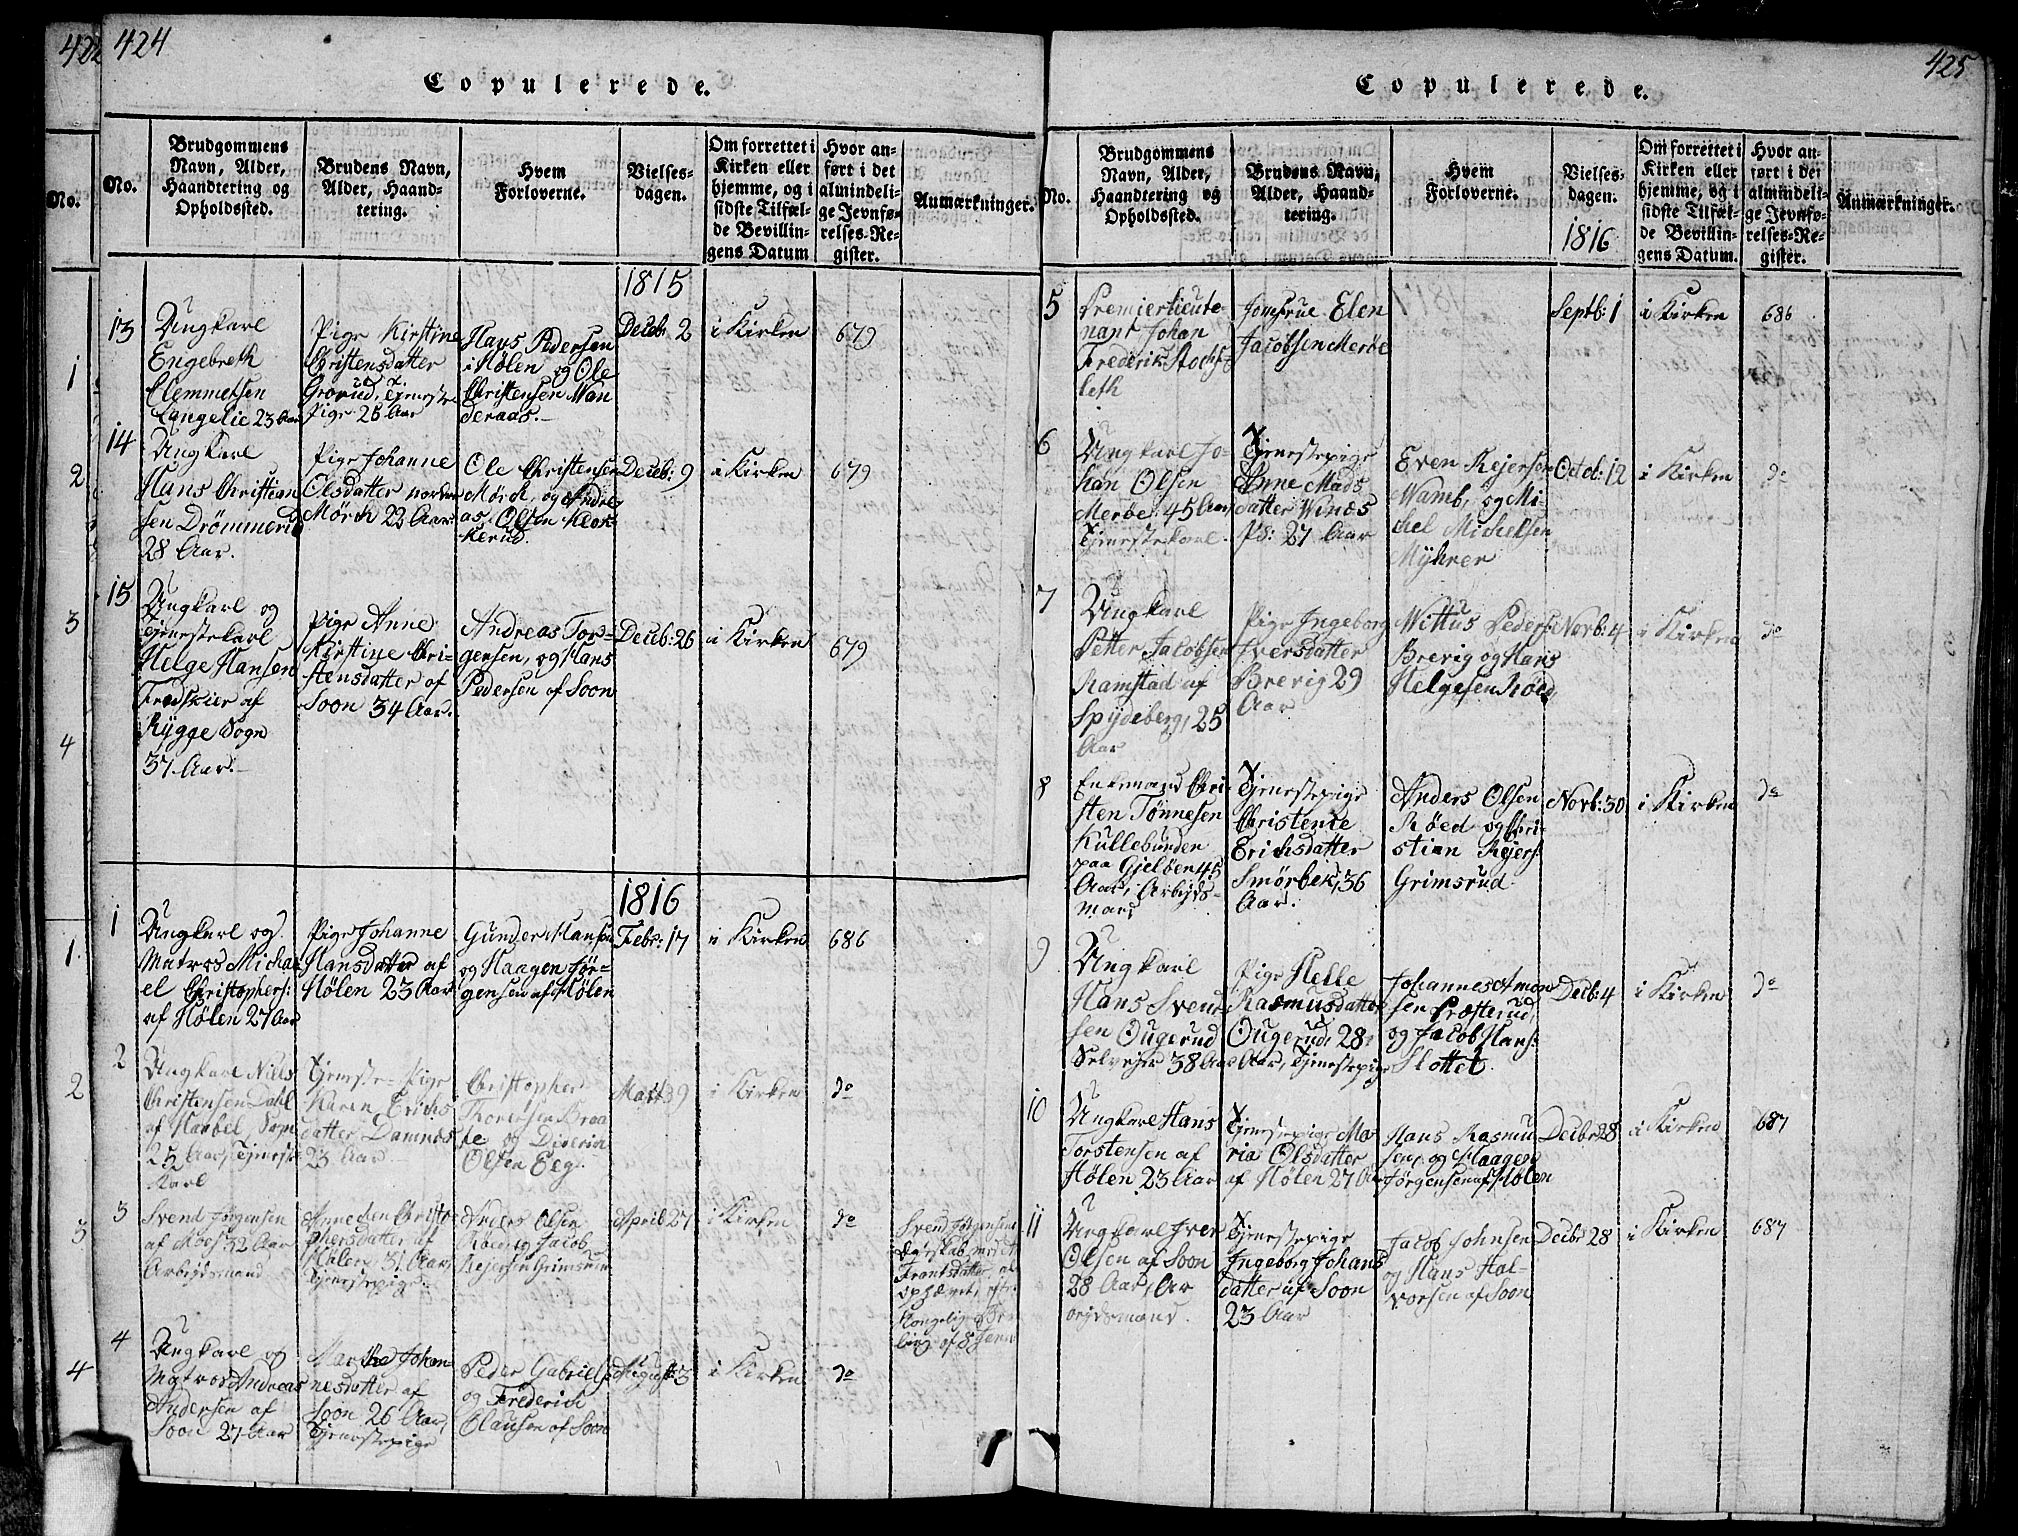 424
Copulerede.
No.
Brudgommens
Navn, Alder,
Haandtering og
Opholdssted.
Brudens Navn,
Alder, Haand-
tering.
Hvem
Forloverne.
Vielses-
dagen.
Om forrettet i
Kirken eller
hjemme, og i
sidste Tilfæl-
de Bevillin-
gens Datum
Hvor an-
ført i det
almindeli-
ge Jevnfø-
relses-Re-
gister.
Anmærkninger.
1815
13
Ungkarl
Engebreth
Clemmetsen
Langelie 23 Aar
Pige Kirstine
Christensdatter
Grorud, Tjeneste
Pige 26 Aar
Hans Pedersen
i Hølen og Ole
Christensen Wan
deraas.
Decebr: 2
i Kirken
679
14
Ungkarl
Hans Christian
sen Drömmerud
28 Aar.
Pige Johanne
Olsdatter nordre
Mörck 22 Aar
Ole Christensen
Mörck, og Andre
as Olsen Klok
kerud.
Deceb: 9
i Kirken
679
15
Ungkarl og
Tjenestekarl
Helge Hansen
Fredskier af
Rygge Sogn
37 Aar.
Pige Anne
Kirstine Chri-
stensdatter af
Soon 34 Aar.
Andreas Tor-
gersen, og Hans
Pedersen af Soon
Deceb: 26
i Kirken
679
1816
1
Ungkarl og
Matros Micha
el Christophers:
af Hølen 27 Aar
Pige Johanne
Hansdatter af
Hølen 23 Aar
Gunder Hansen
og Haagen Jör-
gensen af Hølen
Febr: 17
i Kirken
686
2
Ungkarl Niels
Christensen Dahl
af Haabel Sogn
25 Aar, Tjeneste
Karl
Tjeneste-Pige
Karen Erichs
datter Damnæs
23 Aar
Christopher
Thoresen Braa
te og Diverin
Olsen Eeg.
Marti 9
i Kirken
do
3
Svend Jørgensen
af Moss 32 Aar
Arbejdsmand
Anne den Christo
phersdatter af
Hølen 31 Aar,
Tjenestepige.
Anders Olsen
Røed og Jacob
Rejersen Grimsrud
April 27
i Kirken
do
Svend Jørgensens
Frantsdatter, er
ophævet, efter
Kongelig
ling af 8 Jan
4
Ungkarl og
Matros Andreas
Andersen af
Soon 27 Aar
Marthe Johan-
nesdatter af
Soon 26 Aar,
Tjenestepige
Peder Gabriels:
og Fredrich
Clausen af Soon
August 3
i Kirken
do
425
Copulerede.
No.
Brudgommens
Navn, Alder,
Haandtering og
Opholdssted.
Brudens Navn,
Alder, Haand-
tering.
Hvem
Forloverne.
Vielses-
dagen.
1816
Om forrettet i
Kirken eller
hjemme, og i
sidste Tilfæl-
de Bevillin-
gens Datum.
Hvor an-
ført i det
almindeli-
ge Jevnfø-
relses-Re-
gister.
Anmærkninger.
5
Premierlieute-
nant Johan
Frederik Stockf-
leth
Jomfrue Elen
Jacobsen Merøe
Septb: 1
i Kirken
686
6
Ungkarl Jo-
han Olsen
Merøe 45 Aar,
Tjenestekarl.
Tjenestepige
Anne Mads
datter Windes
Ps: 27 Aar
Even Rejersen
Wamb, og Mi-
chel Michelsen
Myhrer
Octob: 12
i Kirken
do
7
Ungkarl
Petter Jacobsen
Ramstad af
Spydeberg, 25
Aar
Pige Ingeborg
Iversdatter
Brevig 29
Aar
Wittus Peders:
Brevig og Hans
Helgesen Røed
Novb: 4
i Kirken
do
8
Enkemand Chri-
sten Tønnesen
Kullebunden
paa Gjeløen 45
Aar, Arbejds-
mand
Tjenestepige
Christence
Erichsdatter
Smörbek, 36
Aar.
Anders Olsen
Røed og Chri-
stian Rejers:
Grimsrud
Novb: 30
i Kirken
do
9
Ungkarl
Hans Svend
sen Ougerud
Selvejer 38 Aar
Pige Helle
Rasmusdatter
Ougerud, 28
Aar, Tjenestepige
Johannes Amon
sen Præsterud,
og Jacob Hans:
Slottet.
Decb: 4
i Kirken
do
10
Ungkarl Hans
Torstensen af
Hølen 23 Aar
Tjenestepige Ma
ria Olsdatter
af Hølen 27 Aar
Hans Rasmu
sen, og Haagen
Jörgensen af Hølen
Decbr 28
i Kirken
687
11
Ungkarl Iver
Olsen af Soon
28 Aar, Ar
bejdsmand.
Tjenestepige
Ingeborg Johans
datter af Soon
23 Aar
Jacob Johnsen
og Hans Hal-
vorsen af Soon
Decbr 28
i Kirken
687